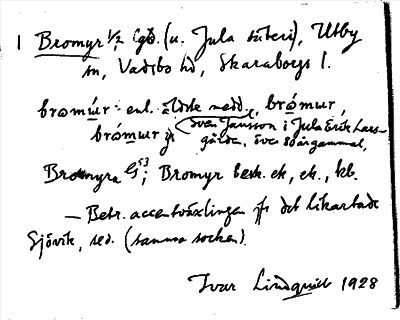 1 Bromyr 1/2 lgd. (u. Jula säteri), Utby
sn, Vadsbo hd, Skaraborgs l.
bromúr enl. äldste medd., brómur,
brómur gm Sven Jansson i Jula Erik Lars-
gården, över 80 år gammal,
Bromyra GS3; Bromyr besk. ek, ek., kb.
— Betr. accentväxlingen jfr det likartade
Sjövik, sed. (samma socken).
Ivar Lindquist 1928